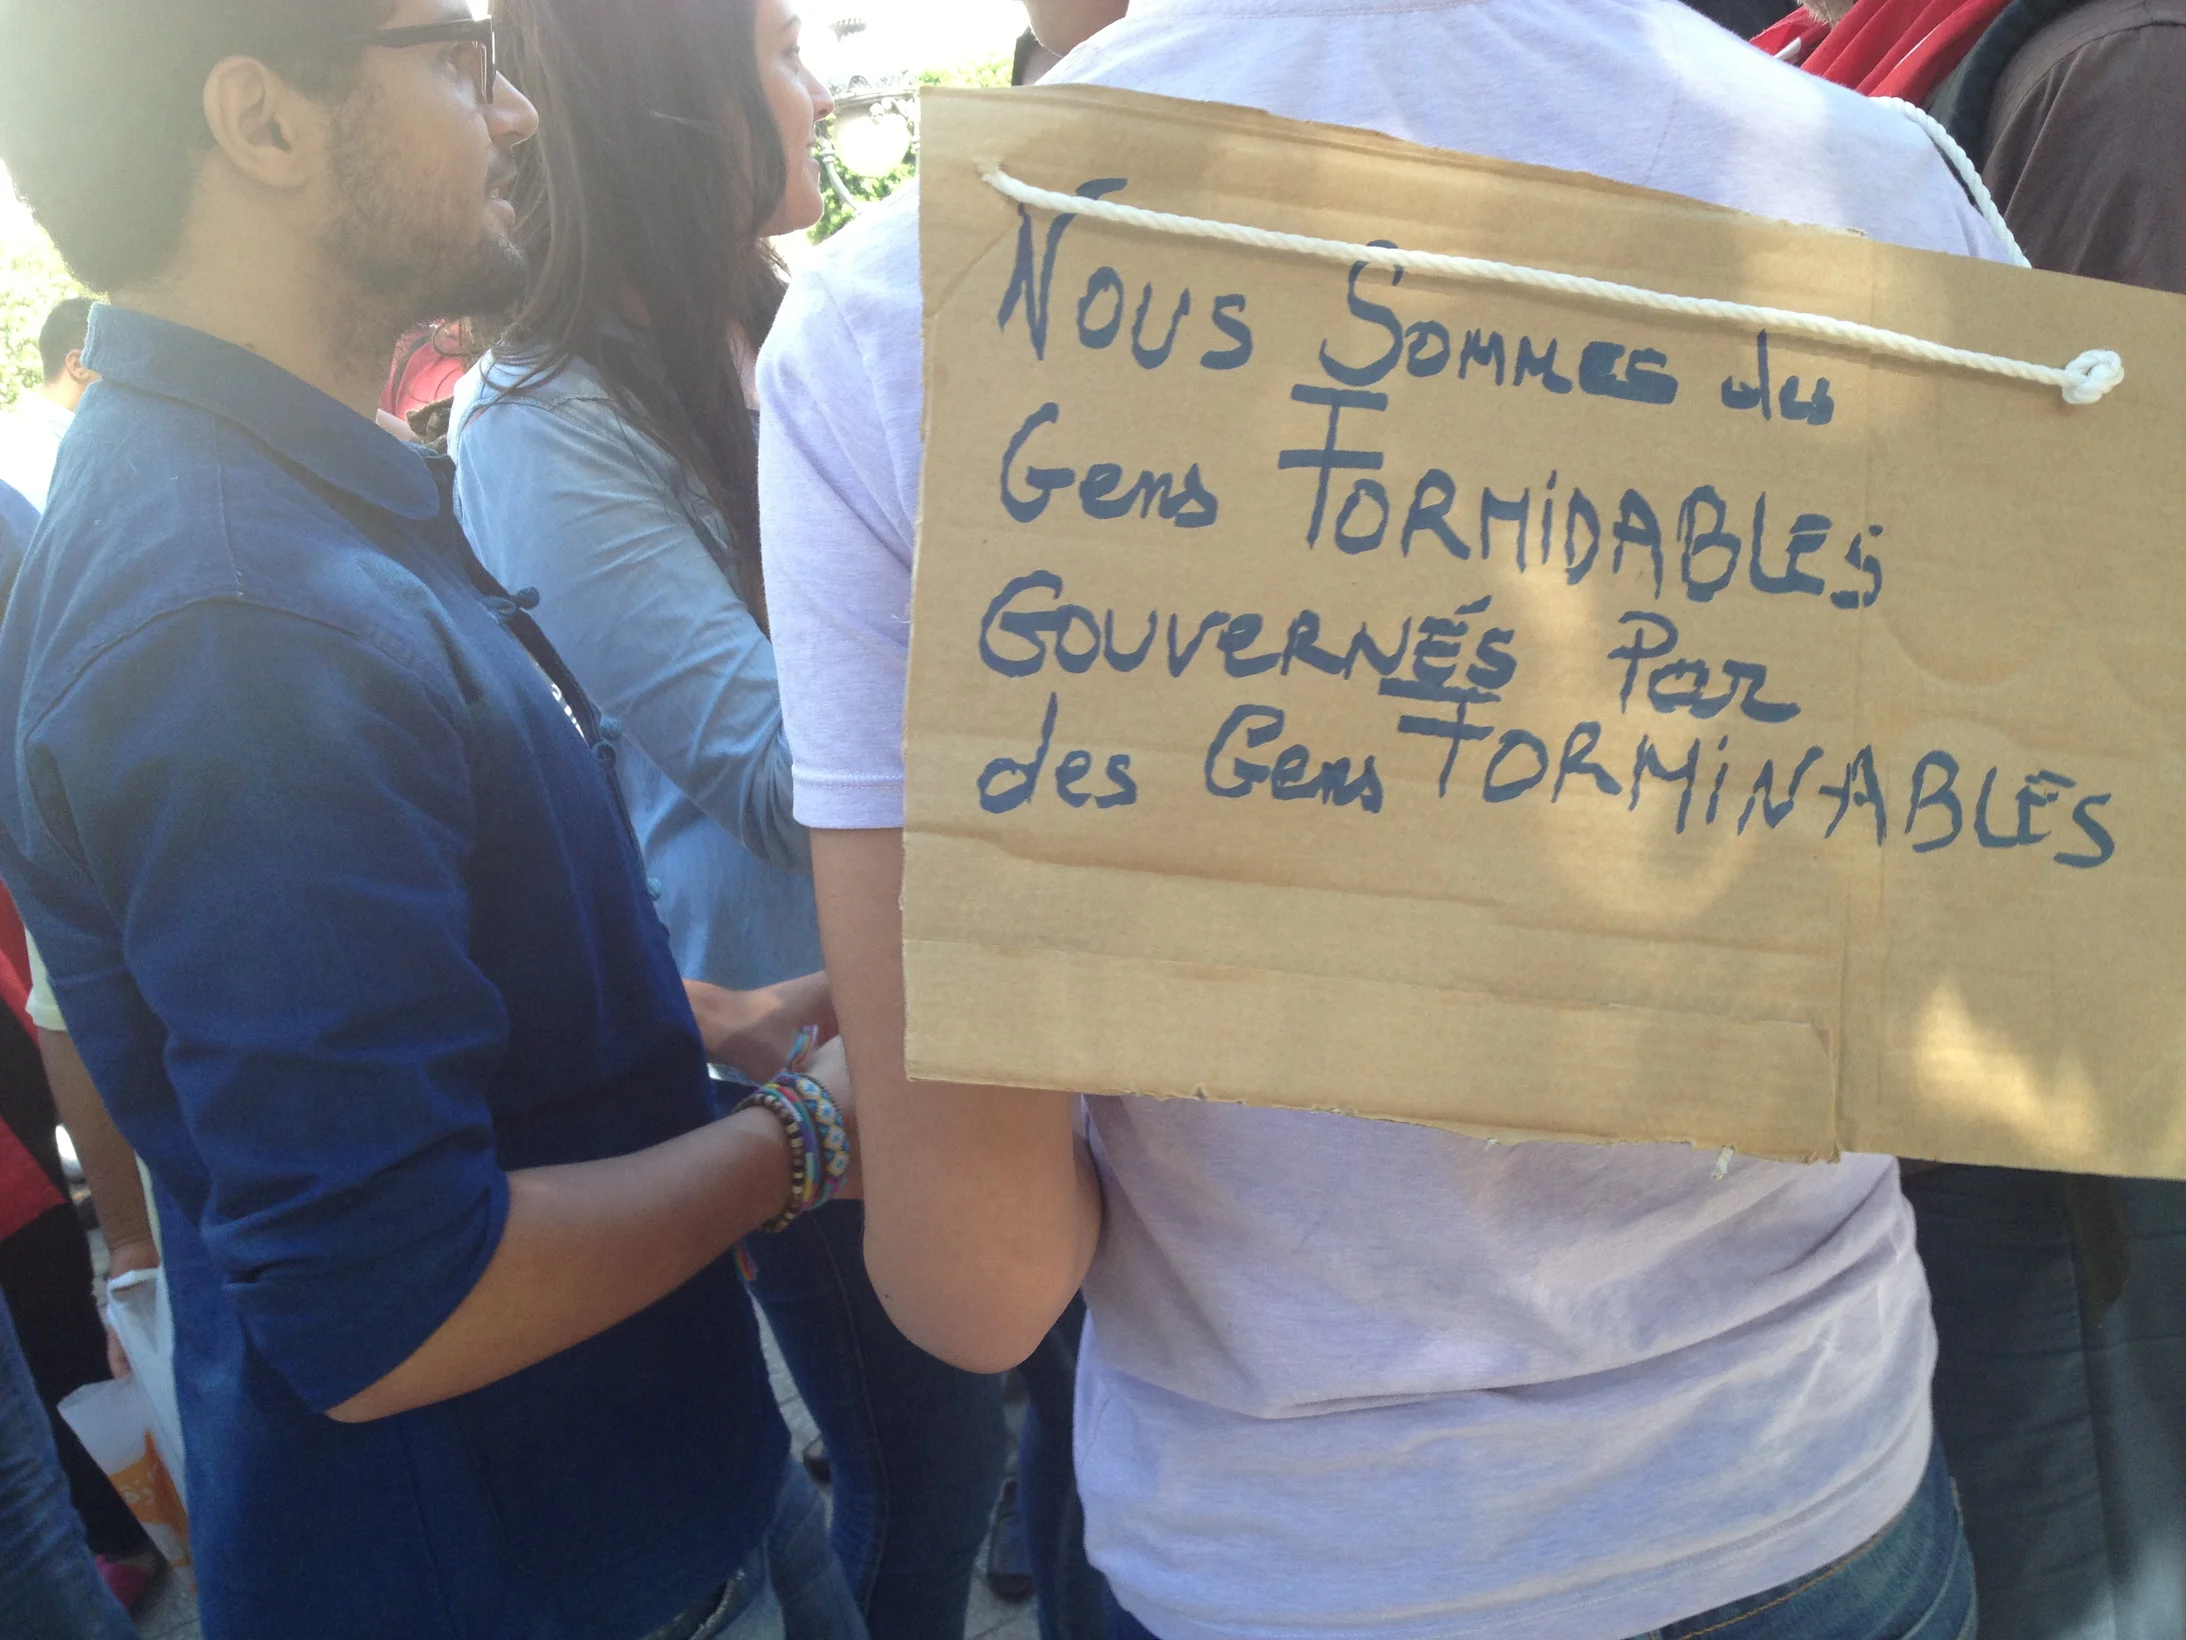 Nous Sommes des
Gens FORMiDABLES
GOUVERNÉS Par
des Gens FORMiNABLES